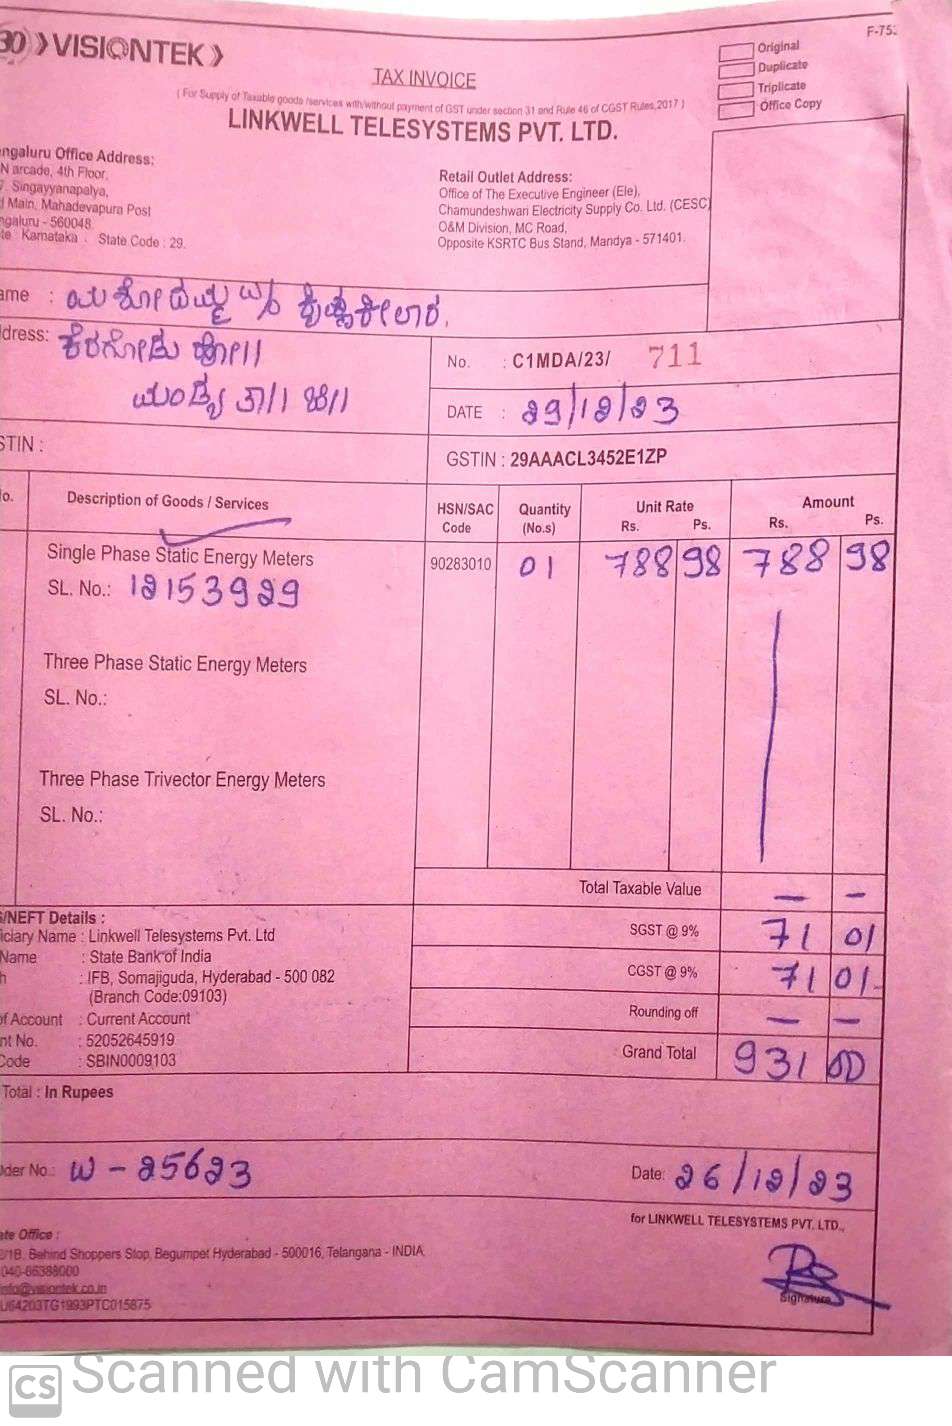 VISIONTEK
F-753
TAX INVOICE
Original
Duplicate
Triplicate
Office Copy
( For Supply of Taxable goods /services with/without payment of GST under section 31 and Rule 46 of CGST Rules,2017 )
LINKWELL TELESYSTEMS PVT. LTD.
ngaluru Office Address:
N arcade, 4th Floor,
Singayyanapalya,
Main, Mahadevapura Post
ngaluru - 560048
te : Karnataka , State Code : 29.
Retail Outlet Address:
Office of The Executive Engineer (Ele),
Chamundeshwari Electricity Supply Co. Ltd. (CESC)
O&M Division, MC Road,
Opposite KSRTC Bus Stand, Mandya - 571401.
ame :
dress: ಕೆರಗೋಡು ಹೋ||
ಮಂಡ್ಯ ತಾ|| ಜಿ||
No. : C1MDA/23/ 711
DATE : 29/12/23
STIN :
GSTIN : 29AAACL3452E1ZP
o. Description of Goods / Services HSN/SAC Code Quantity (No.s) Unit Rate Rs. Ps. Amount Rs. Ps.
Single Phase Static Energy Meters 90283010 01 788 98 788 98
SL. No.: 12153929
Three Phase Static Energy Meters
SL. No.:
Three Phase Trivector Energy Meters
SL. No.:
Total Taxable Value — —
S/NEFT Details :
iciary Name : Linkwell Telesystems Pvt. Ltd
SGST @ 9% 71 01
Name : State Bank of India
h : IFB, Somajiguda, Hyderabad - 500 082
CGST @ 9% 71 01
(Branch Code:09103)
of Account : Current Account
Rounding off — —
nt No. : 52052645919
Code : SBIN0009103
Grand Total 931 00
Total : In Rupees
der No.: W - 25623
Date: 26/12/23
for LINKWELL TELESYSTEMS PVT. LTD.,
ate Office :
/1B, Behind Shoppers Stop, Begumpet Hyderabad - 500016, Telangana - INDIA
040-66388000
info@visiontek.co.in
U64203TG1993PTC015875
Signature
CS Scanned with CamScanner